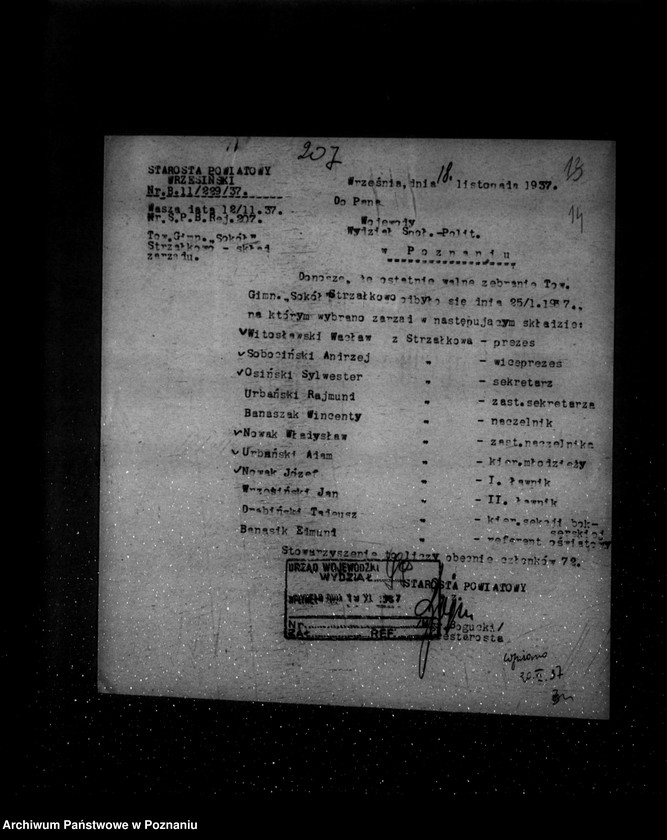 207
13
14
STAROSTA POWIATOWY
WRZESIŃSKI
Nr.B.11/229/37.
Września, dnia 18. listopada 1937.
Wasza data 12/11.37.
Nr.S.P.B.Rej.207.
Do Pana
Wojewody
Wydział Społ.-Polit.
w Poznaniu
Tow.Gimn. „Sokół"
Strzałkowo - skład
zarządu.
Donoszę, że ostatnie walne zebranie Tow.
Gimn. „Sokół" Strzałkowo odbyło się dnia 25/1.1937.,
na którym wybrano zarząd w następującym składzie:
Witosławski Wacław z Strzałkowa - prezes
Sobociński Andrzej " - wiceprezes
Osiński Sylwester " - sekretarz
Urbański Rajmund " - zast.sekretarza
Banaszak Wincenty " - naczelnik
Nowak Władysław " - zast.naczelnika
Urbański Adam " - kier.młodzieży
Nowak Józef " - I. ławnik
Wrzesiński Jan " - II. ławnik
Drabiński Tadeusz " - kier.sekcji bok-
serskiej
Banasik Edmund " - referent oświatowy
Stowarzyszenie to liczy obecnie członków 72.
URZĄD WOJEWÓDZKI
WYDZIAŁ
19 XI 1937
Nr.
ZAŁ. REF.
STAROSTA POWIATOWY
Bogucki/
Wpisano
Archiwum Państwowe w Poznaniu